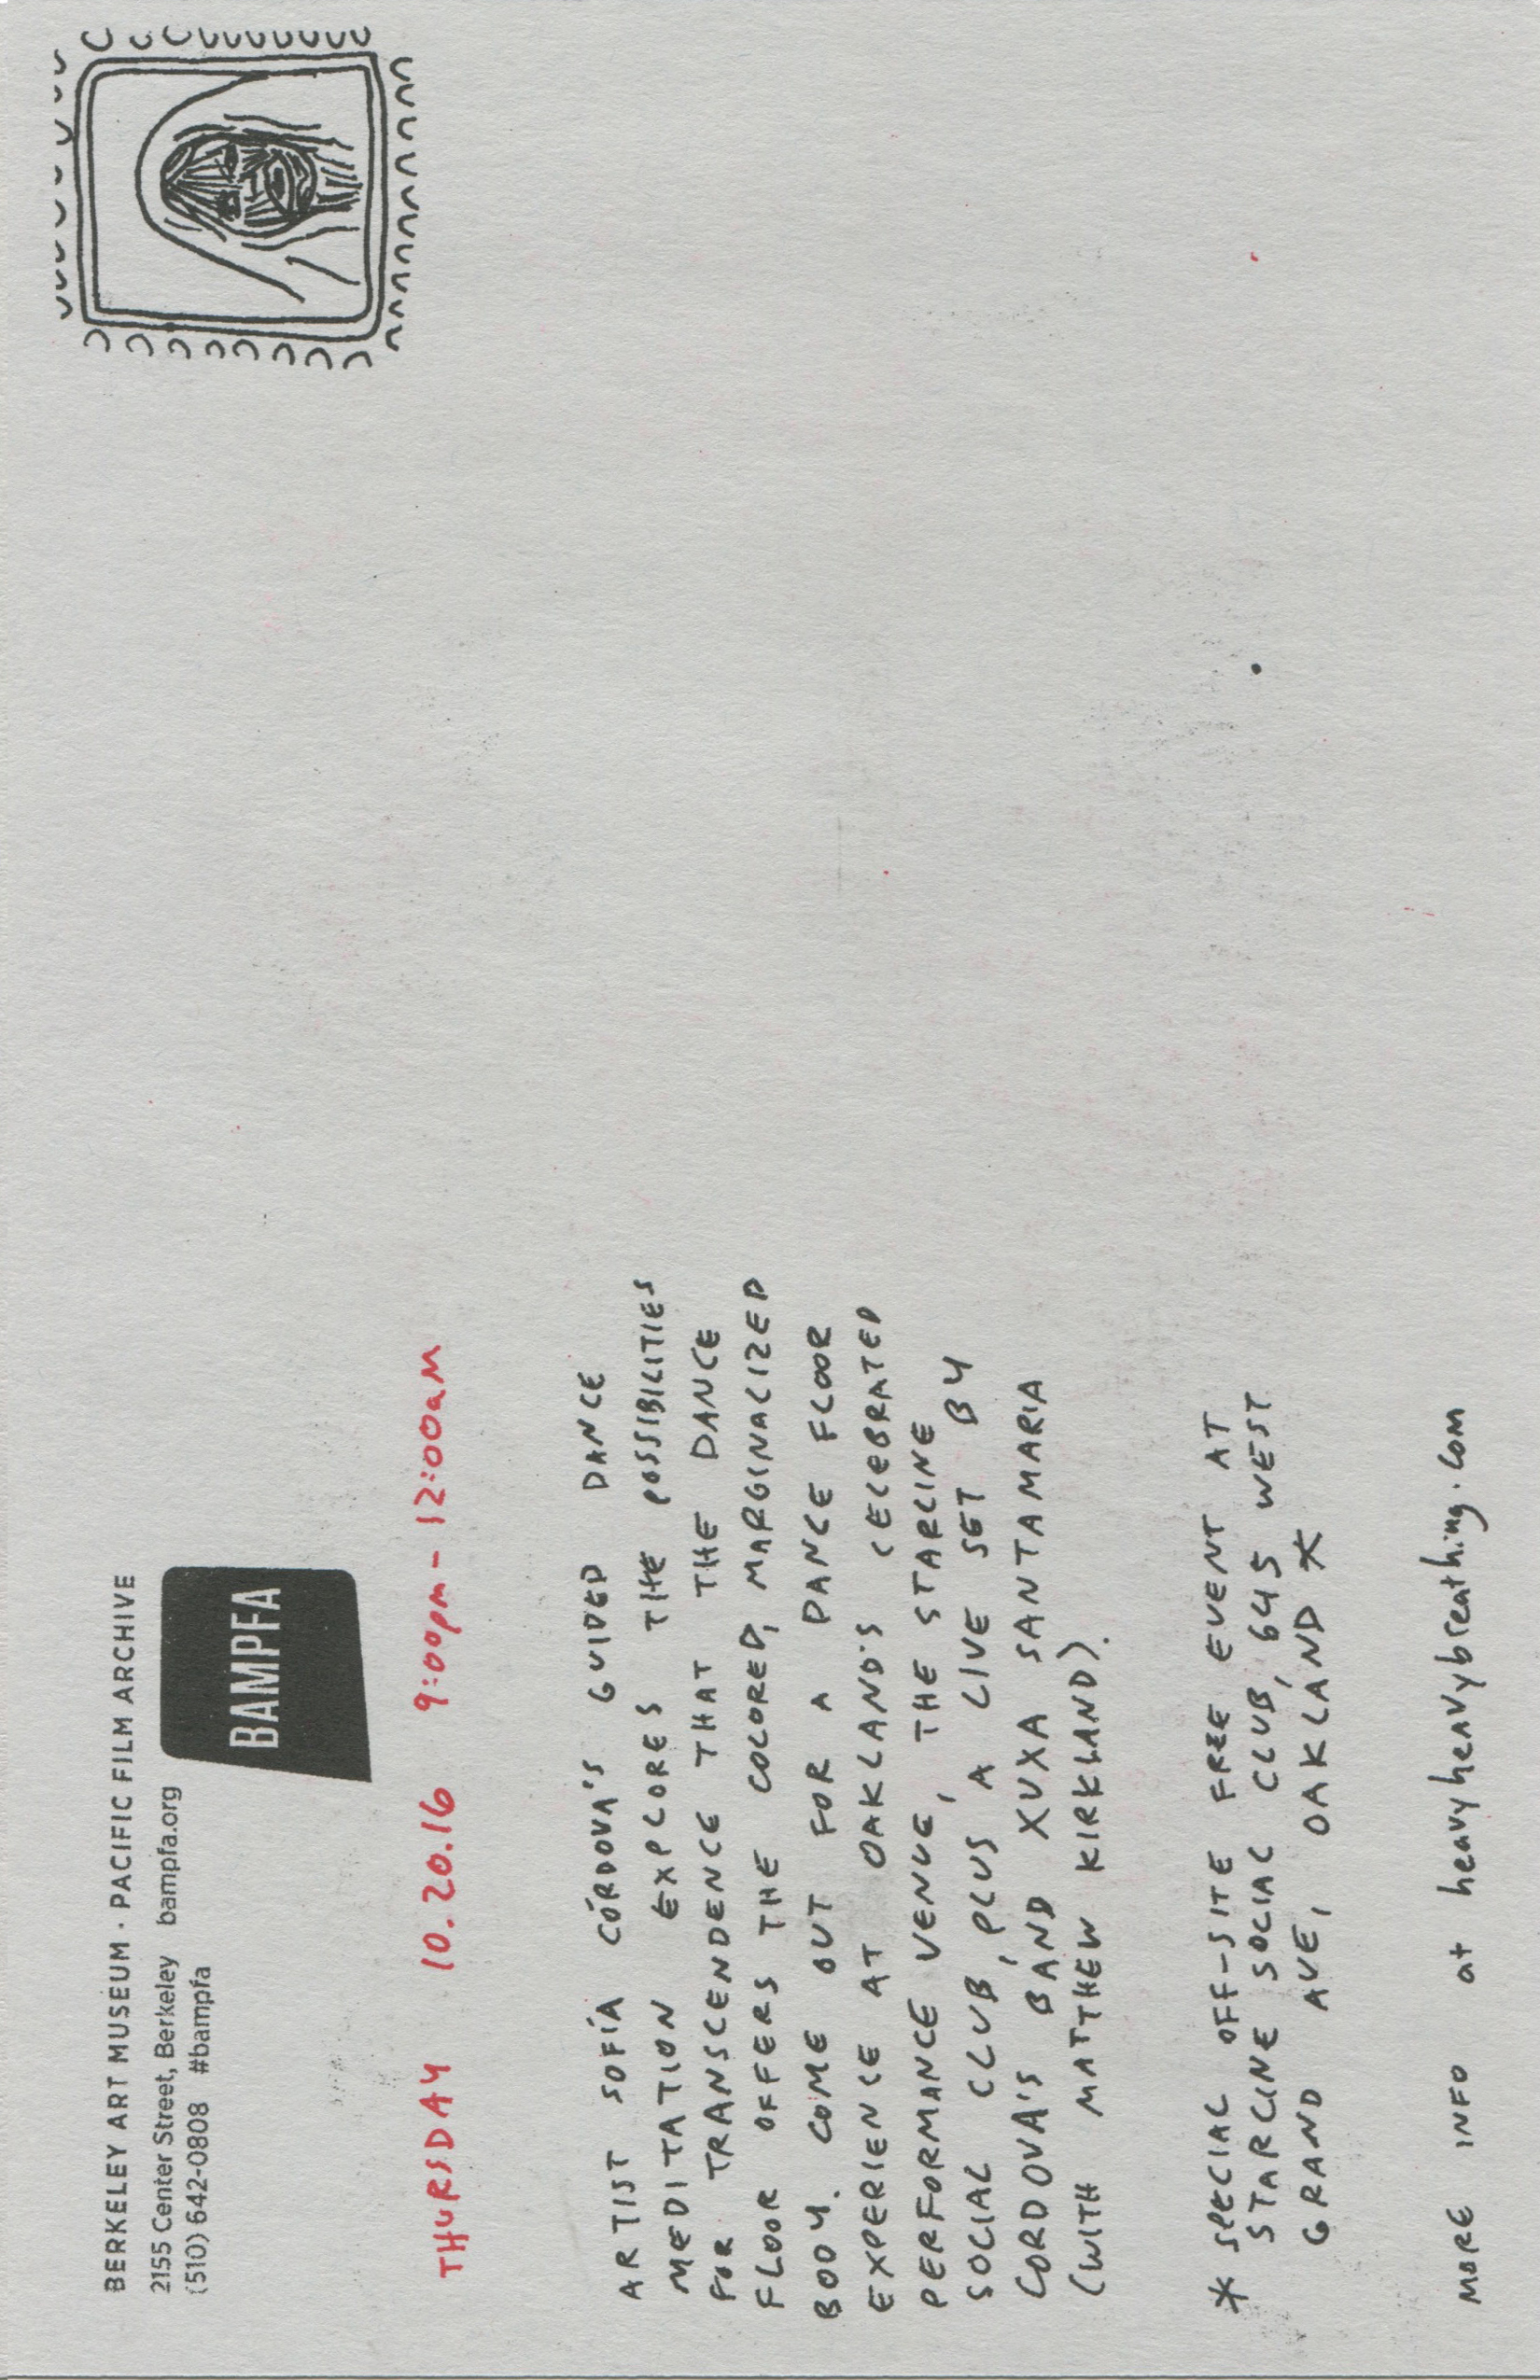 BERKELEY ART MUSEUM · PACIFIC FILM ARCHIVE
2155 Center Street, Berkeley bampfa.org
(510) 642-0808 #bampfa
BAMPFA
THURSDAY 10.20.16 9:00pm - 12:00am
ARTIST SOFÍA CÓRDOVA'S GUIDED DANCE
MEDITATION EXPLORES THE POSSIBILITIES
FOR TRANSCENDENCE THAT THE DANCE
FLOOR OFFERS THE COLORED, MARGINALIZED
BODY. COME OUT FOR A DANCE FLOOR
EXPERIENCE AT OAKLAND'S CELEBRATED
PERFORMANCE VENUE, THE STARLINE
SOCIAL CLUB, PLUS A LIVE SET BY
CORDOVA'S BAND, XUXA SANTAMARIA
(WITH MATTHEW KIRKLAND).
* SPECIAL OFF-SITE FREE EVENT AT
STARLINE SOCIAL CLUB, 645 WEST
GRAND AVE, OAKLAND *
MORE INFO at heavyheavybreathing.com